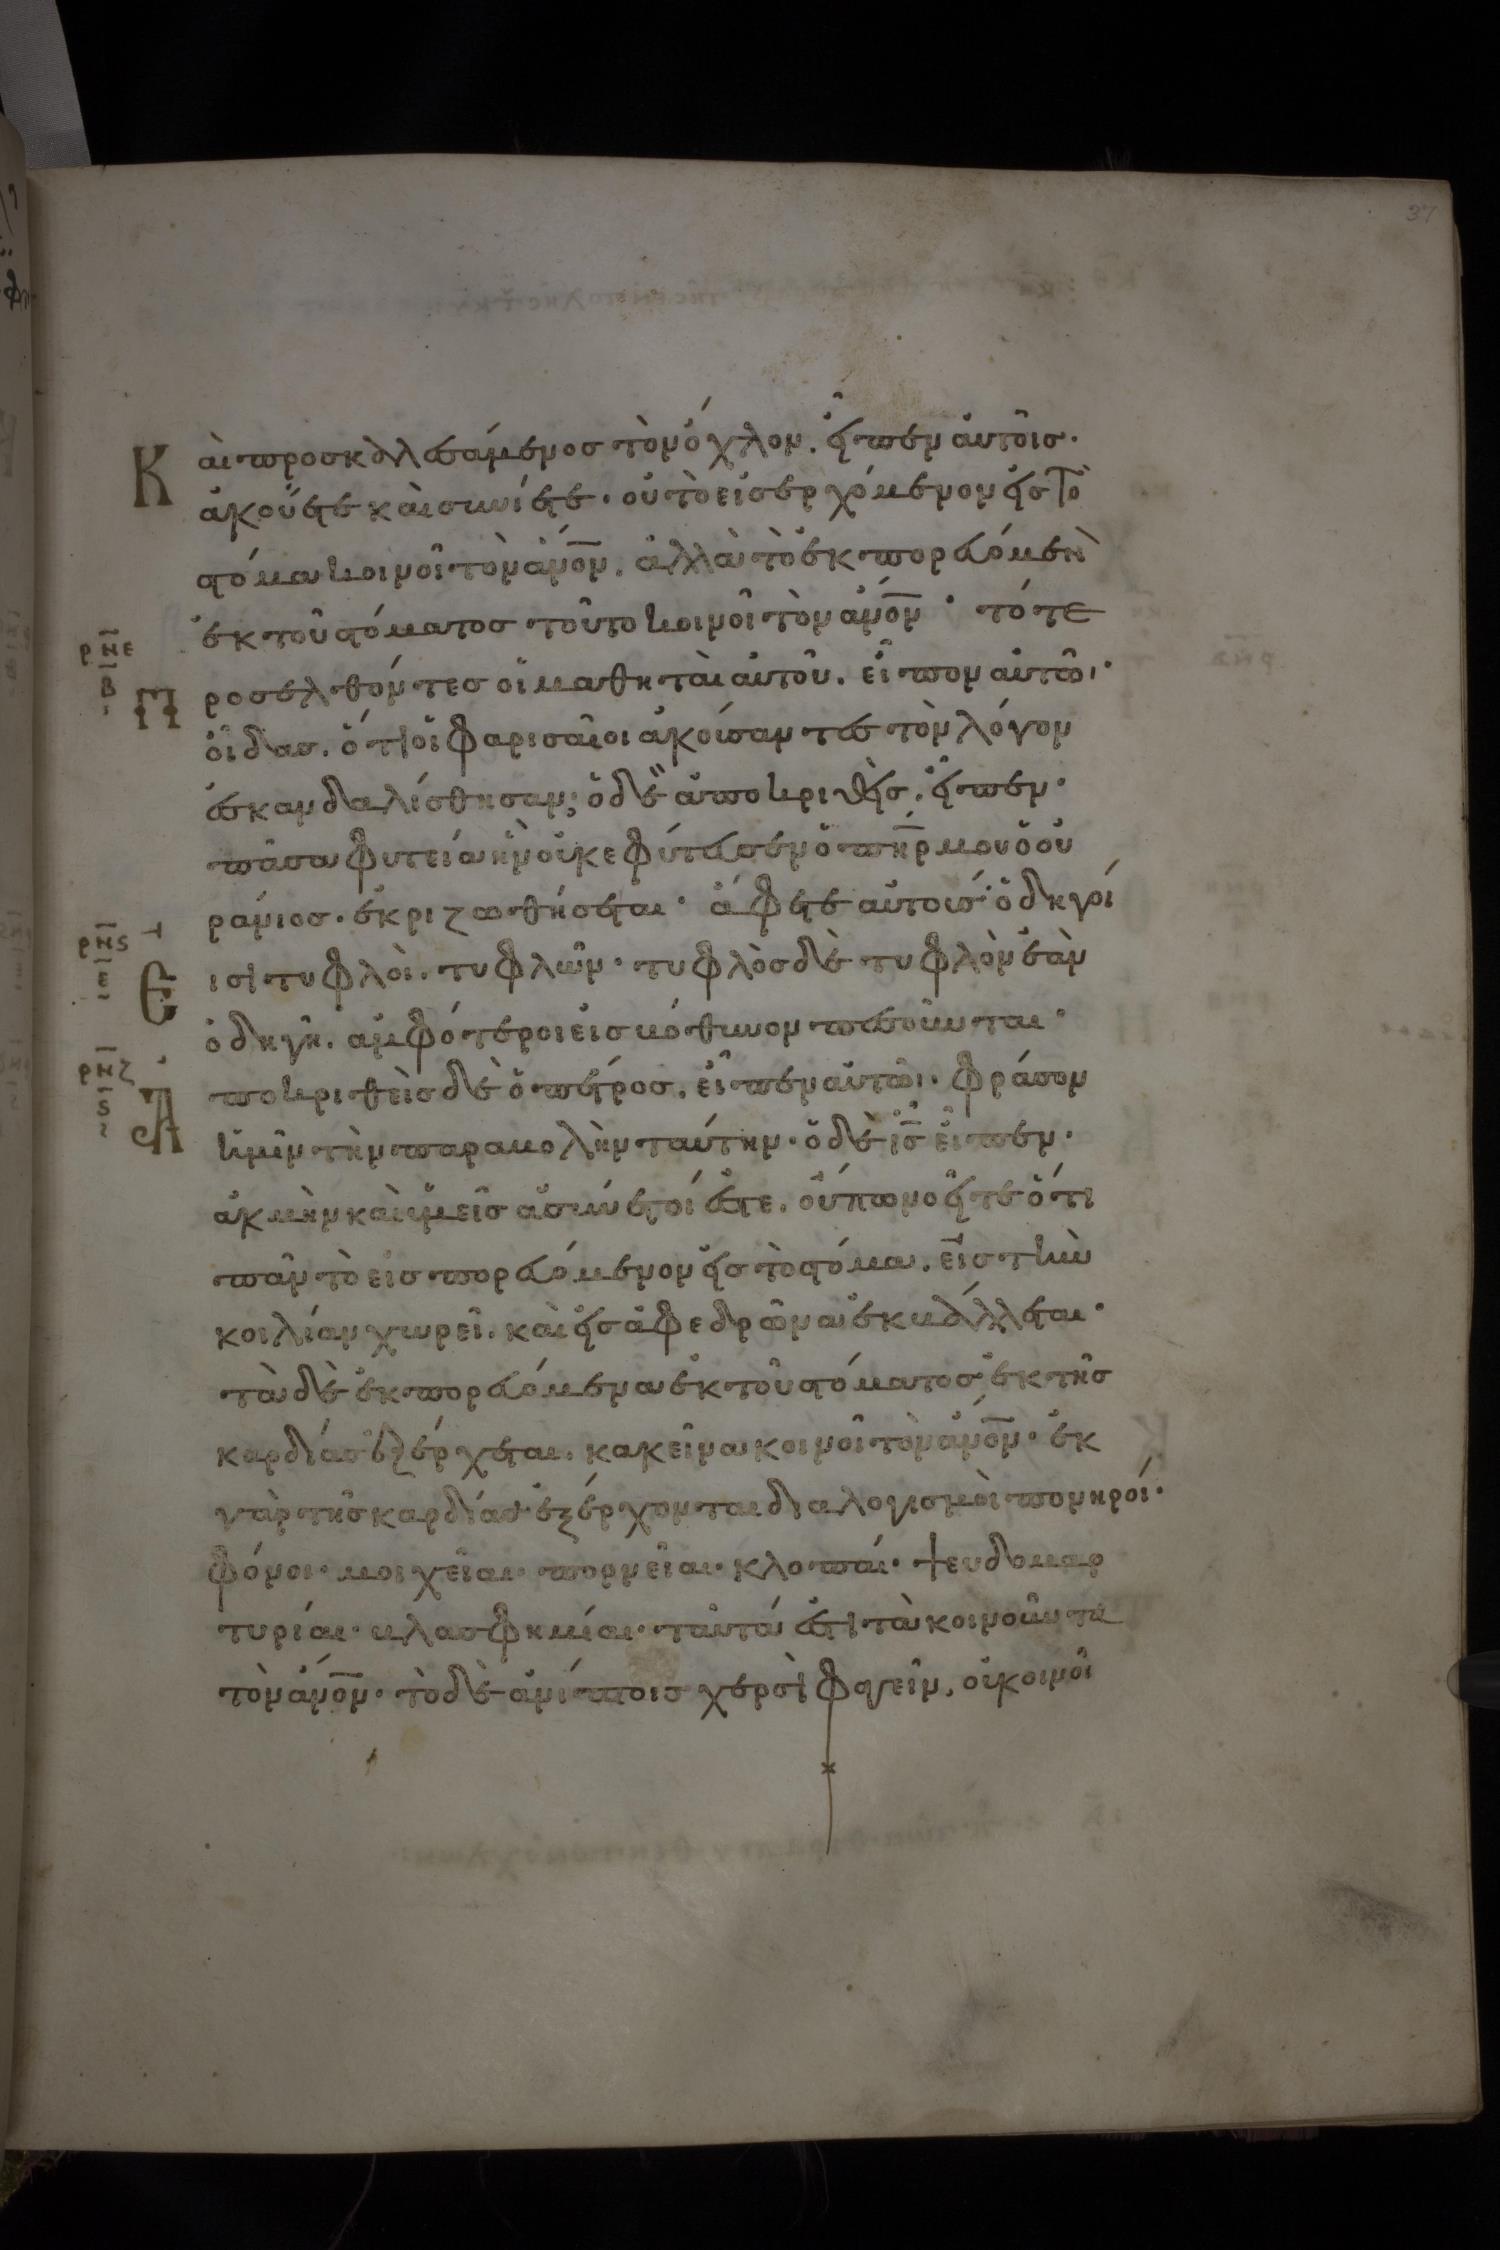 37
Καὶ προσκαλεσάμενος τὸν ὄχλον. εἶπεν αὐτοῖς·
ἀκούετε καὶ συνίετε· οὐ τὸ εἰσερχόμενον εἰς τὸ
στόμα κοινοῖ τὸν ἄνον. ἀλλὰ τὸ ἐκπορευόμενον
ἐκ τοῦ στόματος τοῦτο κοινοῖ τὸν ἄνον· τότε
ρνε
β
Προσελθόντες οἱ μαθηταὶ αὐτοῦ. εἶπον αὐτῶ·
οἶδας. ὅτι οἱ φαρισαῖοι ἀκούσαντες τὸν λόγον
ἐσκανδαλίσθησαν; ὁ δὲ ἀποκριθεὶς. εἶπεν·
πᾶσα φυτεία ἣν οὐκ ἐφύτευσεν ὁ πηρ μου ὁ οὐ
ράνιος. ἐκριζωθήσεται· ἄφετε αὐτούς· ὁδηγοί
ρνς
ε
Εἰσι τυφλοὶ. τυφλῶν· τυφλὸς δὲ τυφλὸν ἐὰν
ὁδηγῆ. ἀμφότεροι εἰς βόθυνον πεσοῦνται·
ρνζ
ς
Ἀποκριθεὶς δὲ ὁ πέτρος. εἶπεν αὐτῶι· φράσον
ἡμῖν τὴν παραβολὴν ταύτην· ὁ δὲ ις εἶπεν·
ἀκμὴν καὶ ὑμεῖς ἀσύνετοί ἐστε. οὔπω νοεῖτε ὅτι
πᾶν τὸ εἰσπορευόμενον εἰς τὸ στόμα. εἰς τὴν
κοιλίαν χωρεῖ. καὶ εἰς ἀφεδρῶνα ἐκβάλλεται·
τὰ δὲ ἐκπορευόμενα ἐκ τοῦ στόματος ἐκ τῆς
καρδίας ἐξέρχεται. κἀκεῖνα κοινοῖ τὸν ἄνον· ἐκ
γὰρ τῆς καρδίας ἐξέρχονται διαλογισμοὶ πονηροί·
φόνοι· μοιχεῖαι· πορνεῖαι· κλοπαί· ψευδομαρ
τυρίαι· βλασφημίαι· ταῦτά ἐστι τὰ κοινοῦντα
τὸν ἄνον· τὸ δὲ ἀνίπτοις χερσὶ φαγεῖν, οὐ κοινοῖ